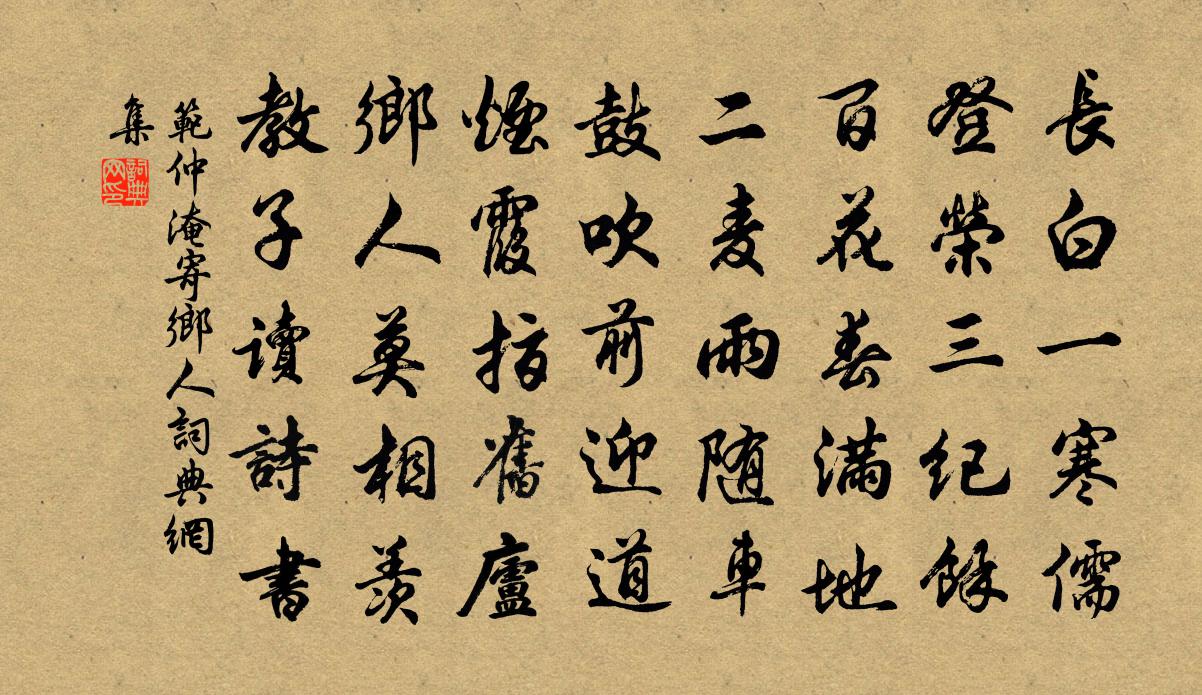 長白一寒儒
登榮三紀餘
百花春滿地
二麦雨随車
鼓吹前迎道
煙霞指舊廬
鄉人莫相羨
教子讀詩書
範仲淹寄鄉人詞典網
集
詞典网印